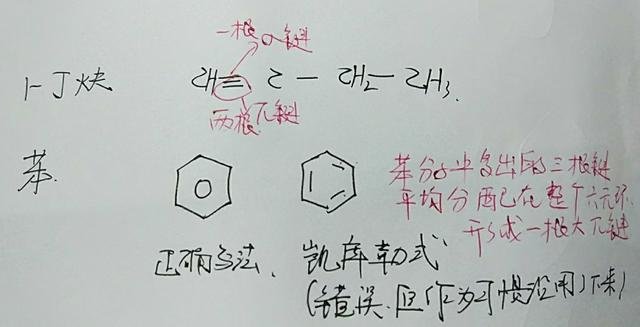 一根σ键
1-丁炔 CH≡C-CH₂-CH₃.
两根π键
苯.
苯分子中多出的三根键
平均分配已在整个六元环
形成一根大π键
正确写法、凯库勒式
(错误.但作为习惯沿用下来)